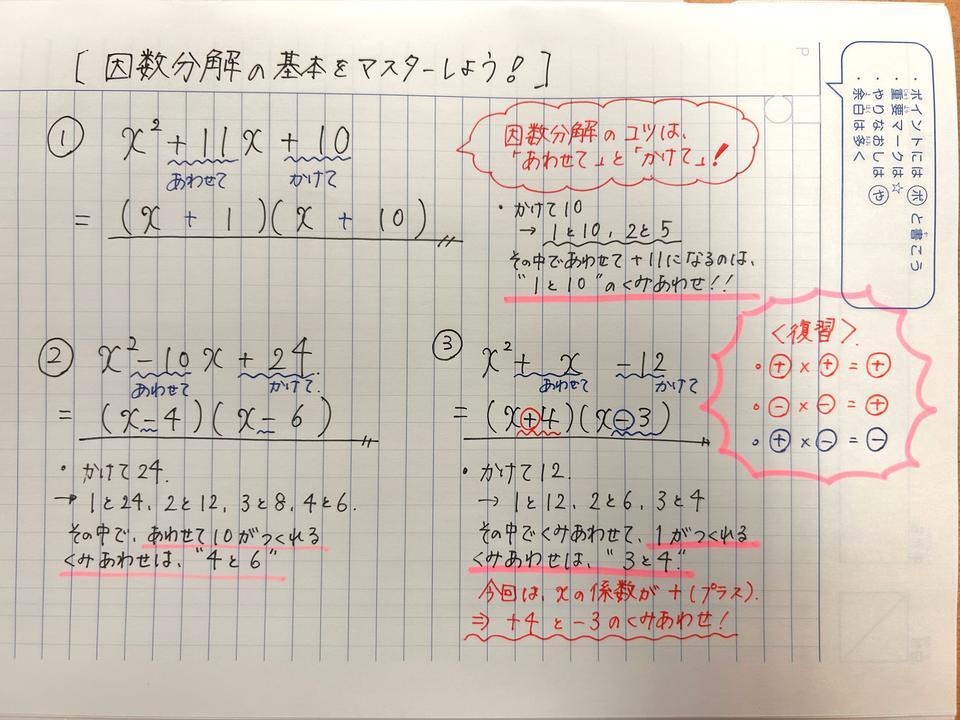 [ 因数分解の基本をマスターしよう! ]
① x² + 11x + 10
あわせて かけて
= (x + 1)(x + 10)
因数分解のコツは、
「あわせて」と「かけて」!
・かけて10
→ 1と10, 2と5
その中であわせて+11になるのは、
"1と10"のくみあわせ!!
② x² - 10x + 24
あわせて かけて
= (x - 4)(x - 6)
・かけて24.
→ 1と24, 2と12, 3と8, 4と6.
その中で、あわせて10がつくれる
くみあわせは、"4と6"
③ x² + x - 12
あわせて かけて
= (x + 4)(x - 3)
・かけて12.
→ 1と12, 2と6, 3と4
その中でくみあわせて、1がつくれる
くみあわせは、"3と4."
今回は、xの係数が+(プラス).
⇒ +4と-3のくみあわせ!
<復習>.
・⊕ × ⊕ = ⊕
・⊖ × ⊖ = ⊕
・⊕ × ⊖ = ⊖
・ポイントには ポ と書こう
・重要マークは☆
・やりなおしは や
・余白は多く